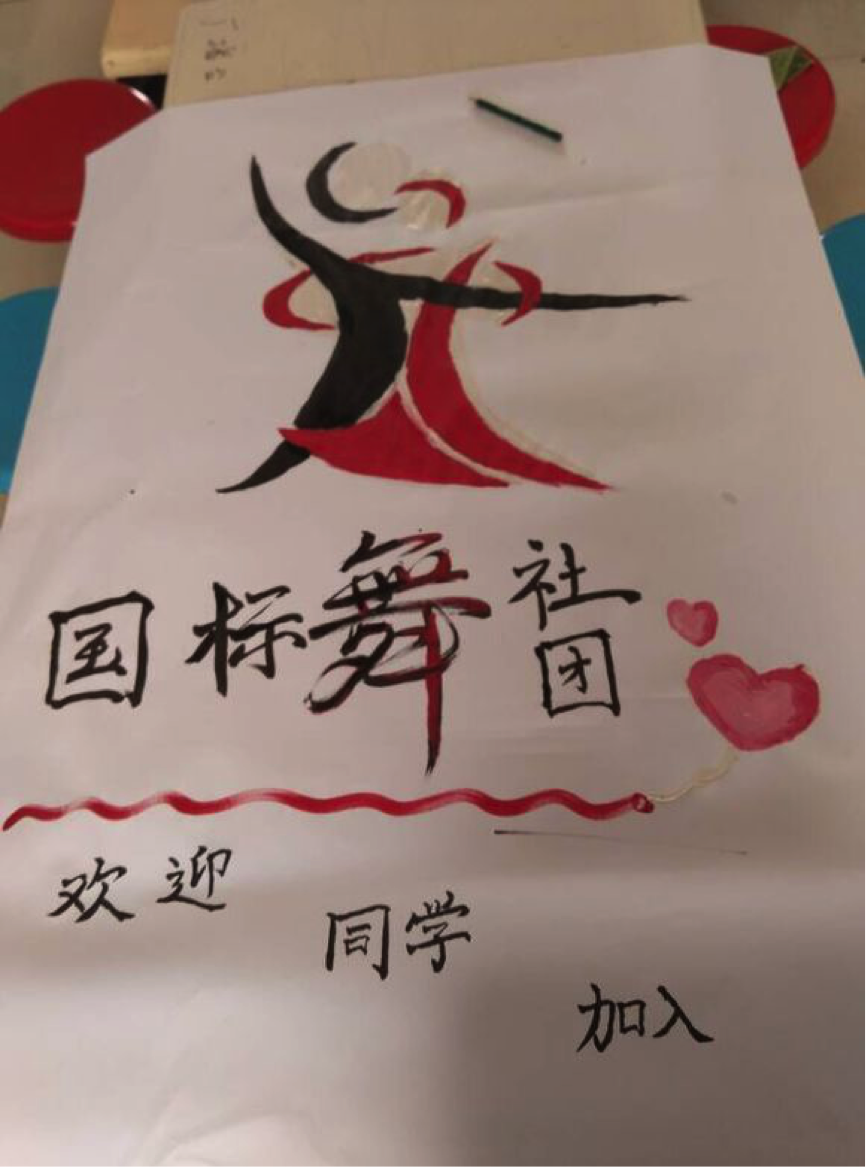 国标舞社团
欢迎
同学
加入